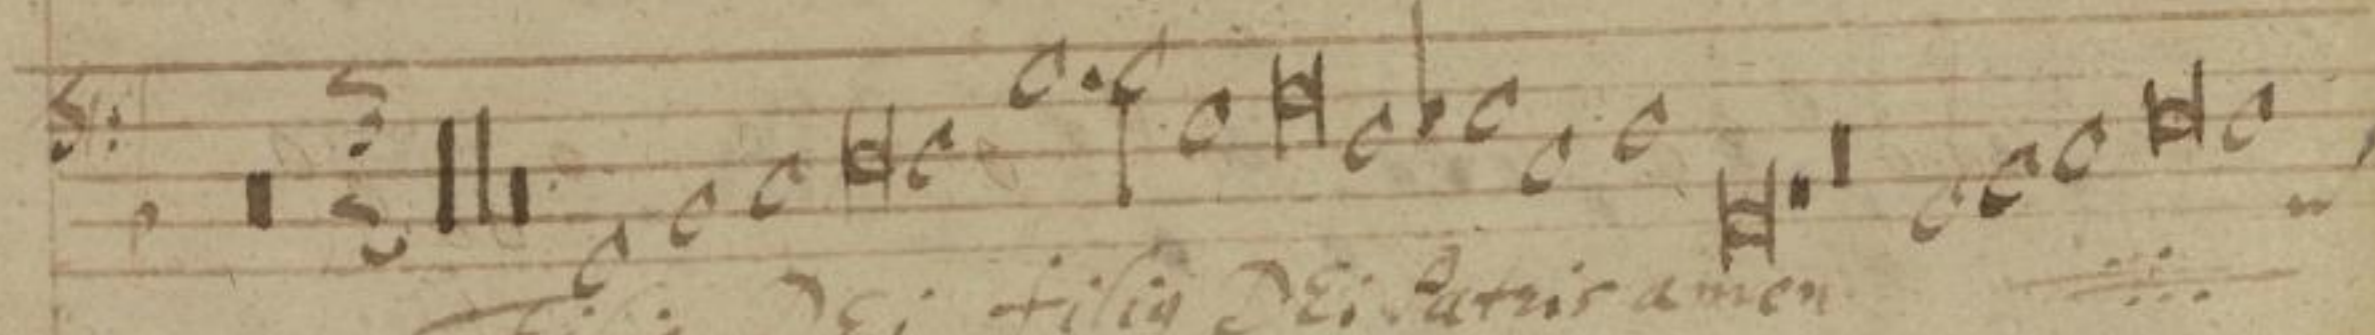 filij Dei filiũ Dei Patris amen